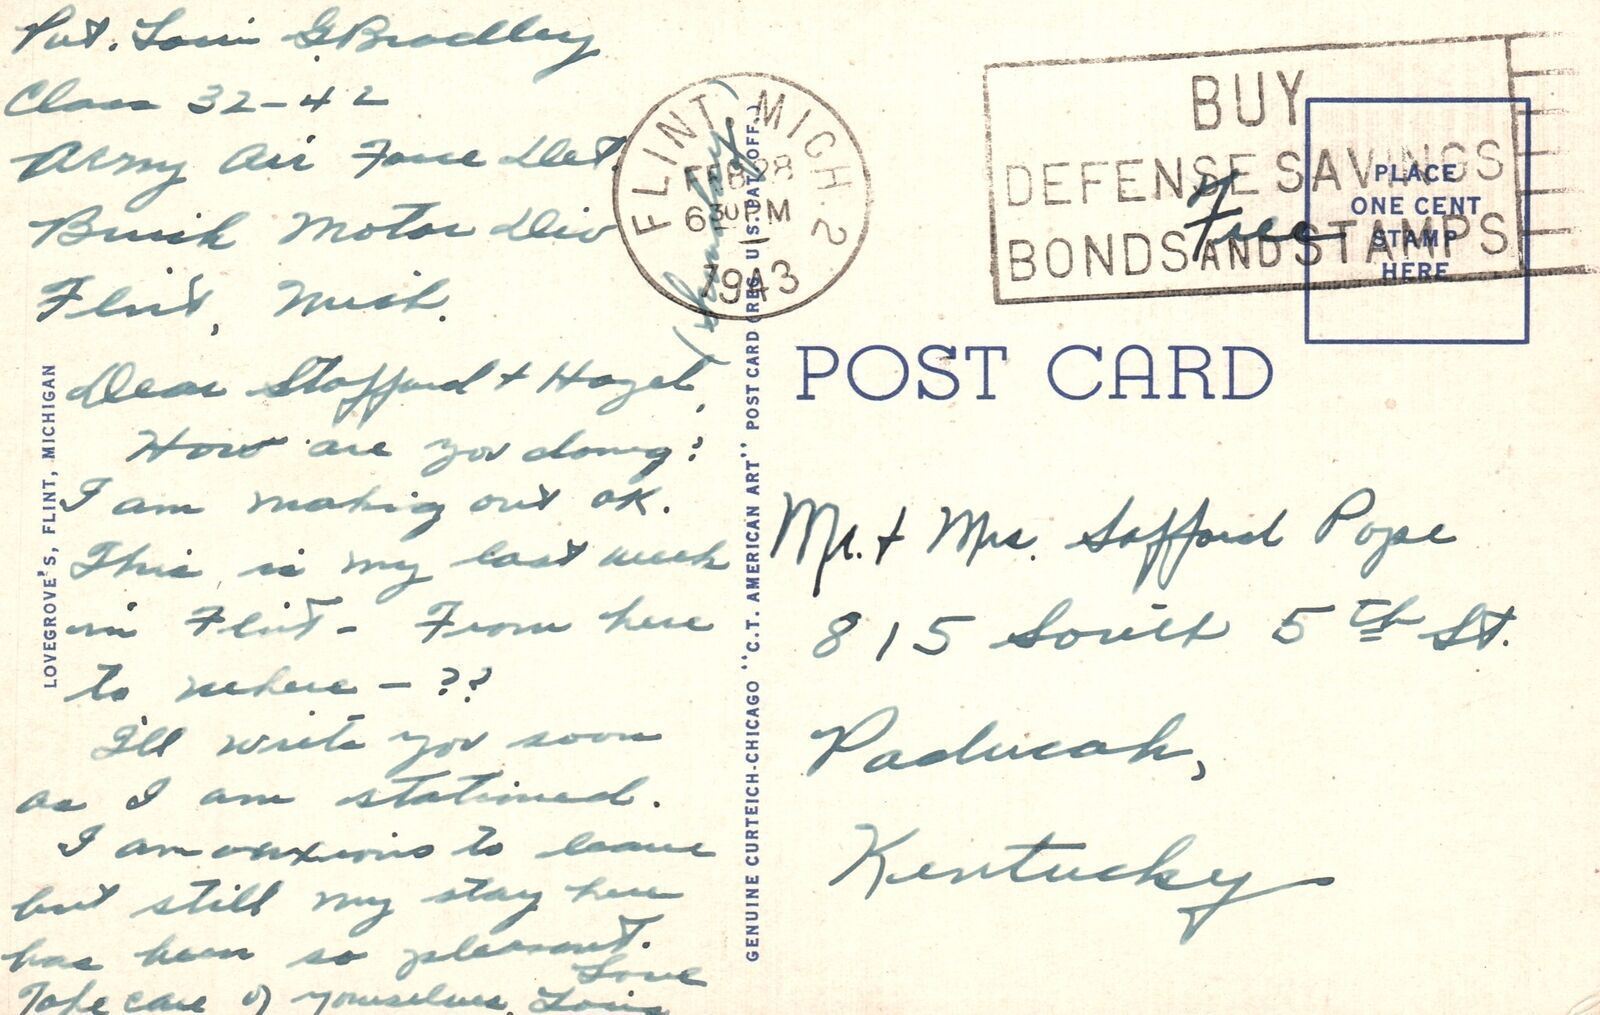 Pvt. Louis G Bradley
Class 32-42
Army Air Force Det.
Buick Motor Div
Flint, Mich.
Dear Stafford + Hazel,
How are you doing?
I am making out OK.
This is my last week
in Flint - From here
to where - ??
I'll write you soon
as I am stationed.
I am anxious to leave
but still my stay here
has been so pleasant.
Take care of yourselves. Love
Louis
(Sunday)
FLINT, MICH. 2
FEB 28
6 30 PM
1943
BUY
DEFENSE SAVINGS
BONDS AND STAMPS
Free
PLACE
ONE CENT
STAMP
HERE
POST CARD
Mr. + Mrs. Safford Pope
815 South 5th St.
Paducah,
Kentucky
LOVEGROVE'S, FLINT, MICHIGAN
GENUINE CURTEICH-CHICAGO "C.T. AMERICAN ART" POST CARD (REG. U.S. PAT. OFF.)